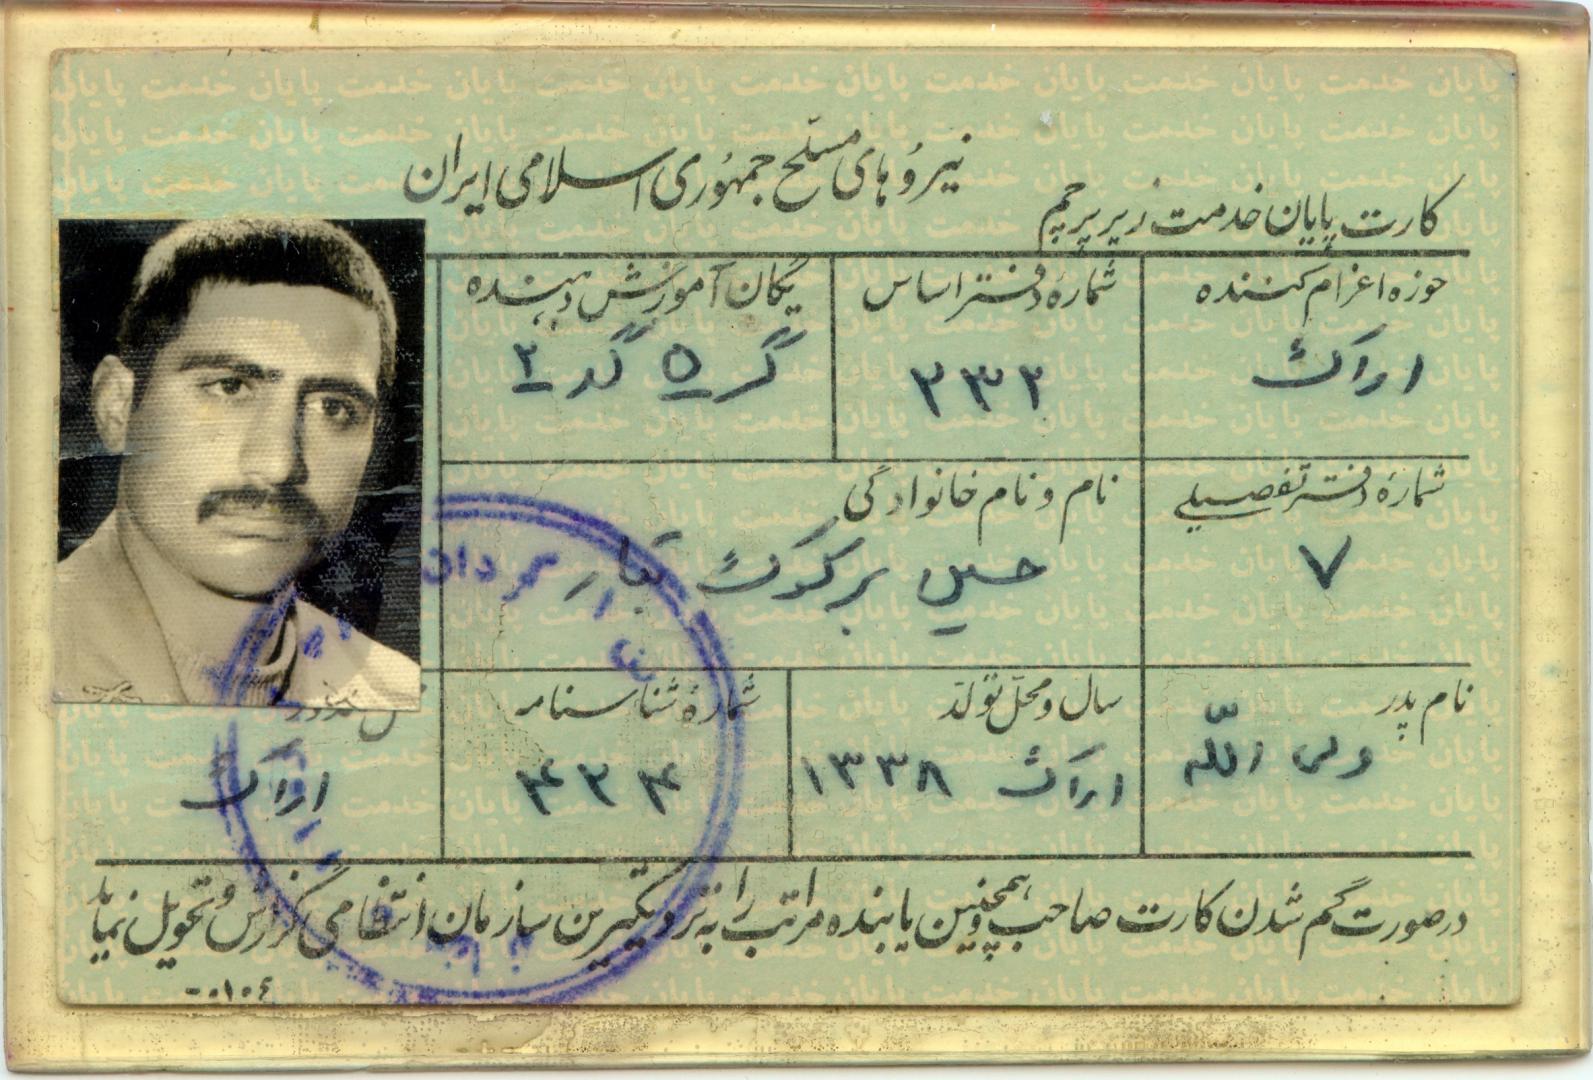 نیروهای مسلح جمهوری اسلامی ایران
کارت پایان خدمت زیر پرچم
حوزه اعزام کننده
اراک
شمارهٔ دفتر اساس
۲۳۲
یگان آموزش دهنده
گر ۵ گد ۲
شمارهٔ دفتر تفصیلی
۷
نام و نام خانوادگی
حسین برکوک تبار
نام پدر
ولی الله
سال و محل تولد
اراک ۱۳۳۸
شمارهٔ شناسنامه
۴۲۴
اراک
درصورت گم شدن کارت صاحب و همچنین یابنده مراتب را به نزدیکترین سازمان انتظامی گزارش و تحویل نماید